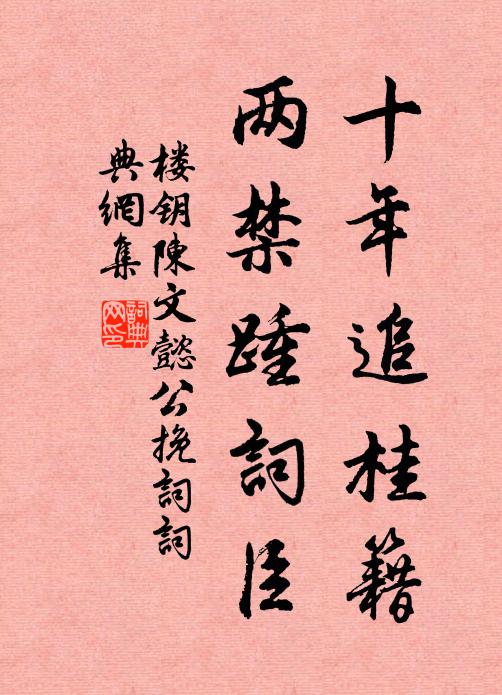 十年追桂籍
两禁踵詞臣
楼钥陳文懿公挽詞詞
典網集
詞典网印